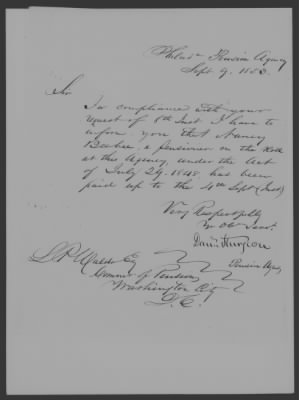 Philada Pension Agency
Sept 9. 1853.
Sir
In compliance with your
request of 8th Inst I have to
inform you that Nancy
a pensioner on the Roll
at this Agency, under the Act
of July 29. 1848 has been
paid up to the 4th Sept (Inst)
Very Respectfully
Yr Obt Servt.
Pension Agent
L P Waldo Esq
Commr of Pensions
Washington City
D. C.